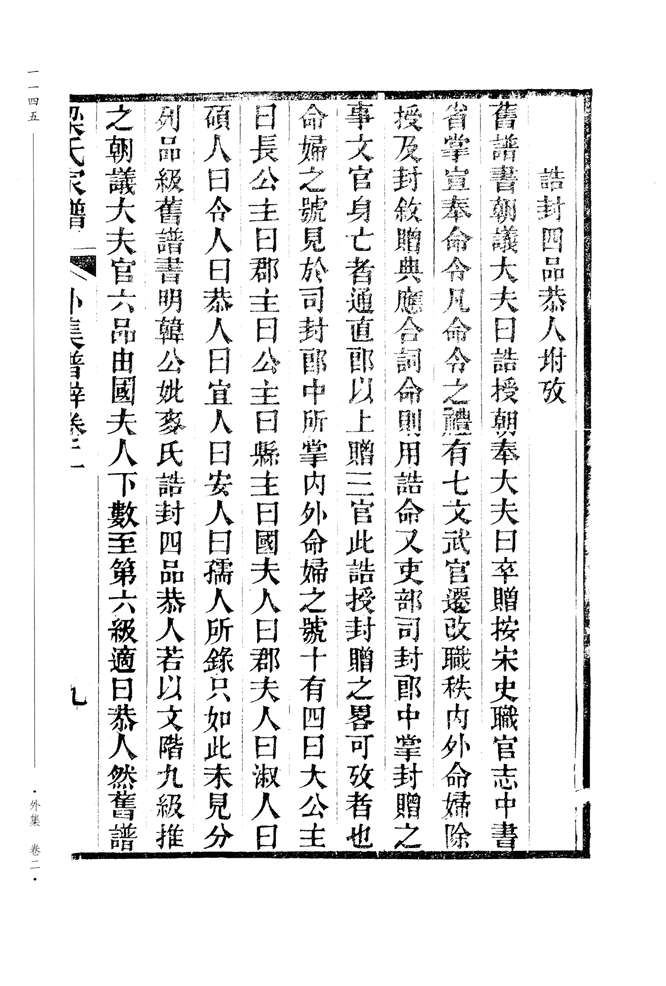 誥封四品恭人坿攷
舊譜書朝議大夫曰誥授朝奉大夫曰卒贈按宋史職官志中書
省掌宣奉命令凡命令之體有七文武官遷改職秩內外命婦除
授及封敘贈典應合詞命則用誥命又吏部司封郎中掌封贈之
事文官身亡者通直郎以上贈三官此誥授封贈之畧可攷者也
命婦之號見於司封郎中所掌內外命婦之號十有四曰大公主
曰長公主曰郡主曰公主曰縣主曰國夫人曰郡夫人曰淑人曰
碩人曰令人曰恭人曰宜人曰安人曰孺人所錄只如此未見分
列品級舊譜書明韓公妣麥氏誥封四品恭人若以文階九級推
之朝議大夫官六品由國夫人下數至第六級適曰恭人然舊譜
梁氏家譜 外集譜辯卷二 九
一一四五
·外集 卷二·